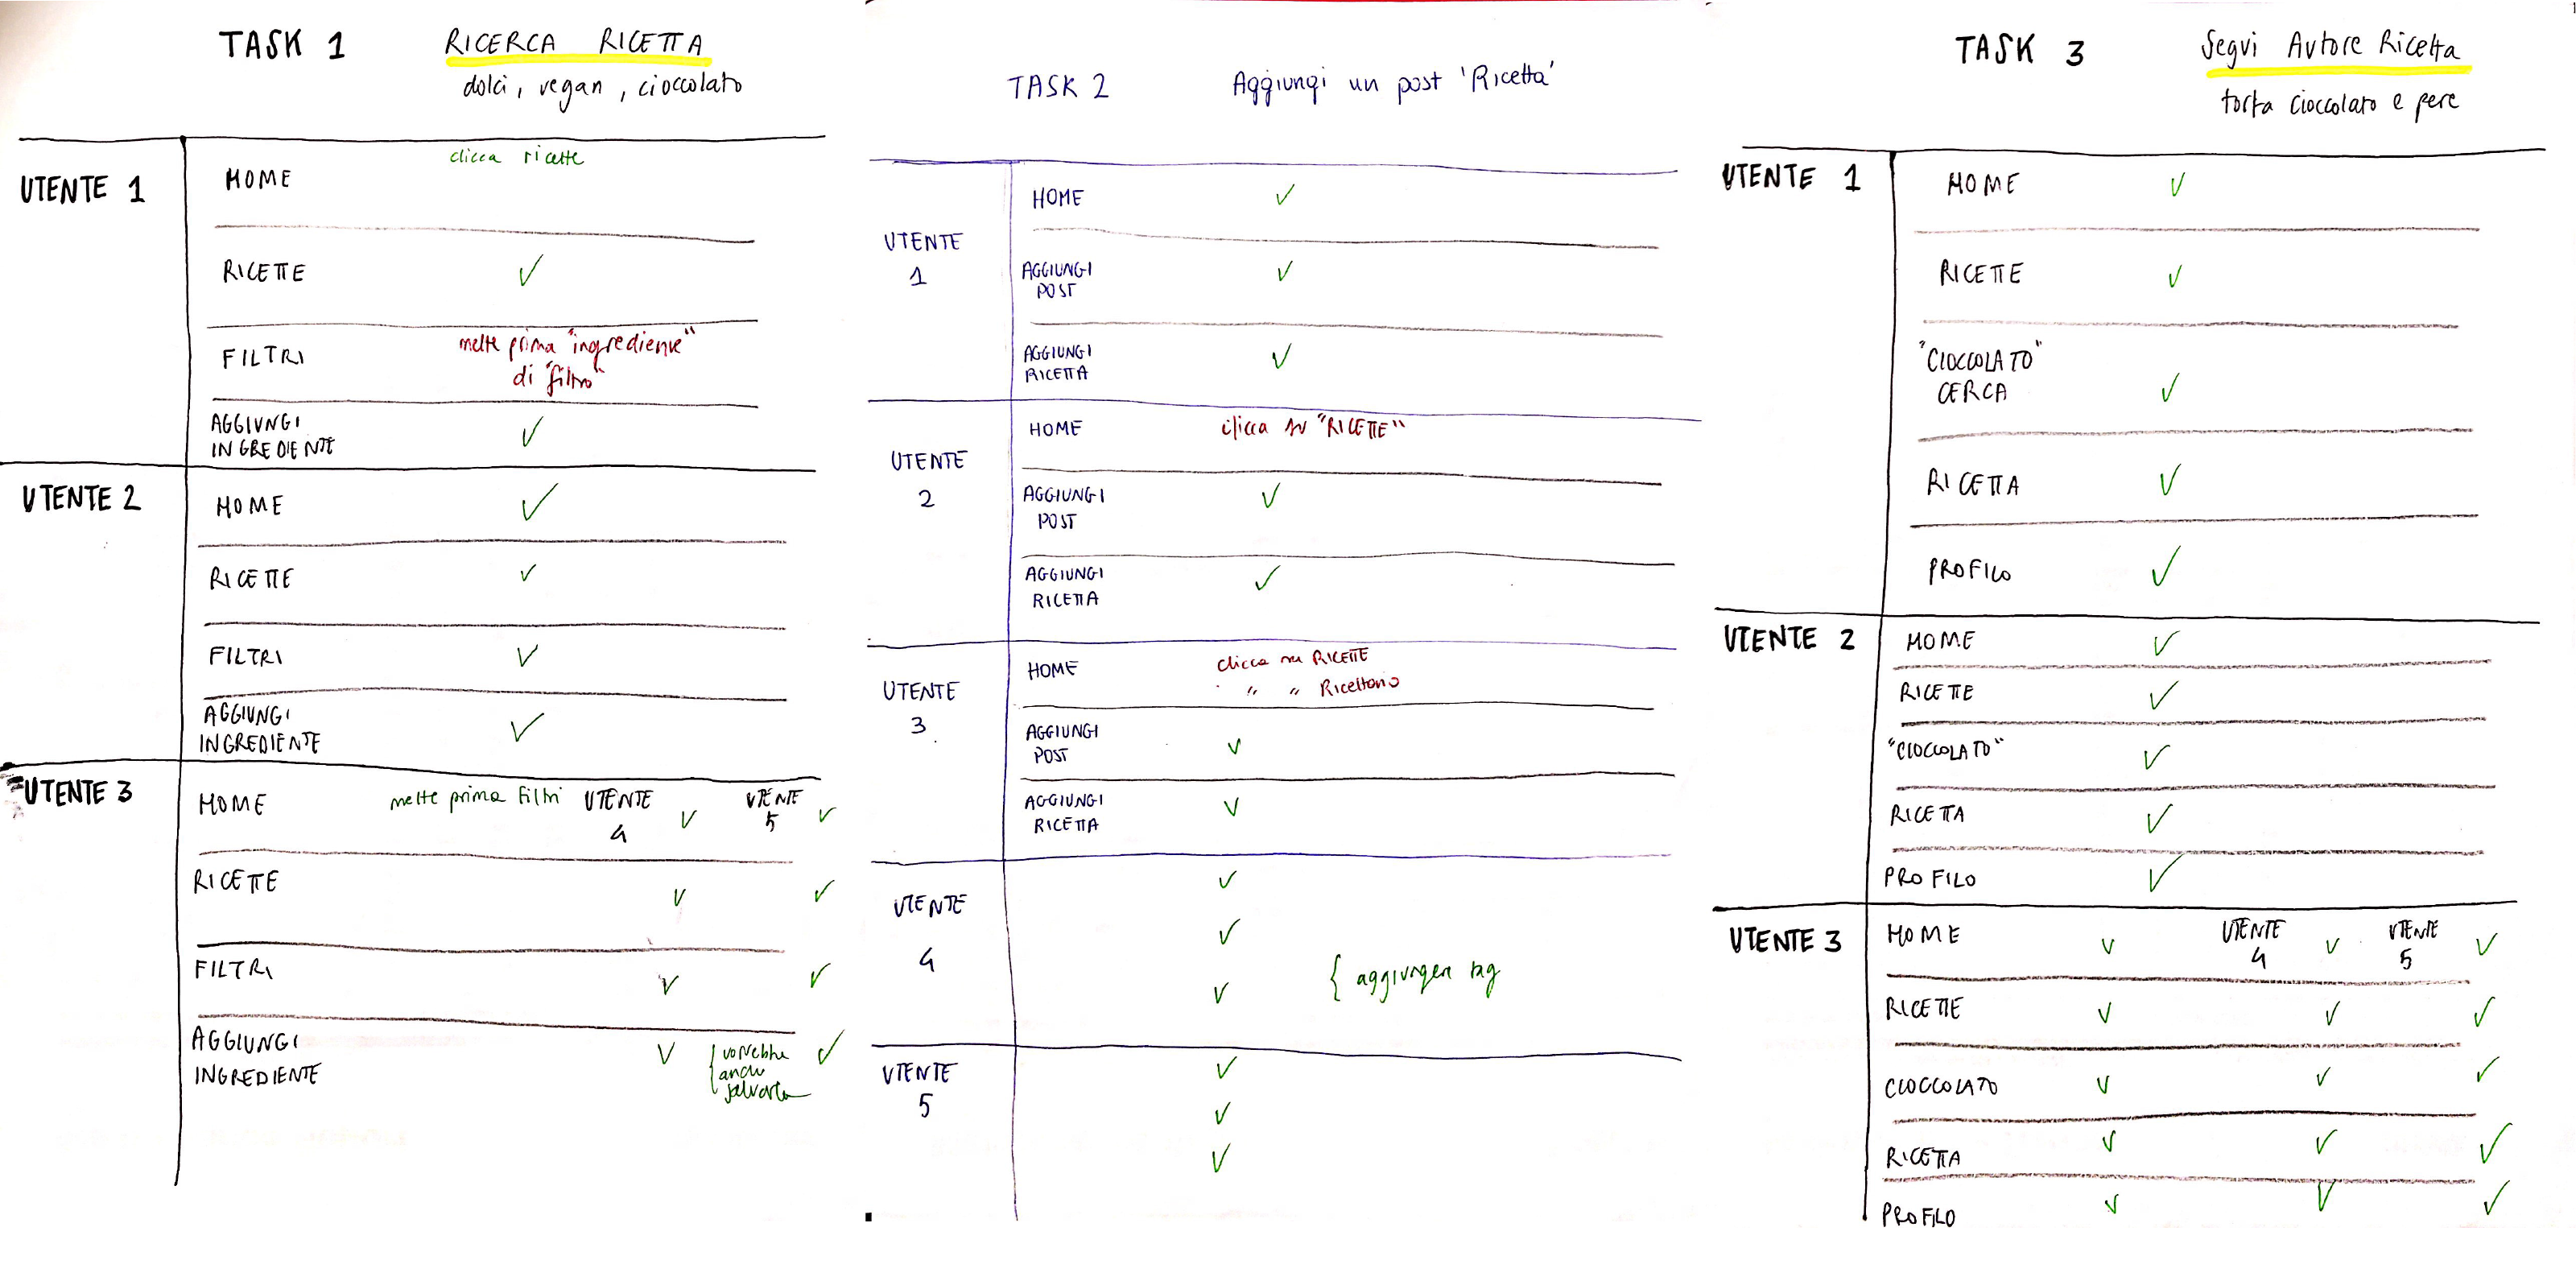 TASK 1 RICERCA RICETTA
dolci, vegan, cioccolato
UTENTE 1
HOME clicca ricette
RICETTE ✓
FILTRI mette prima "ingrediente"
di "filtro"
AGGIUNGI
INGREDIENTE ✓
UTENTE 2
HOME ✓
RICETTE ✓
FILTRI ✓
AGGIUNGI
INGREDIENTE ✓
UTENTE 3
HOME mette prima filtri UTENTE 4 ✓ UTENTE 5 ✓
RICETTE ✓ ✓
FILTRI ✓ ✓
AGGIUNGI
INGREDIENTE ✓ { vorrebbe ✓
anche
salvarla
TASK 2 Aggiungi un post 'Ricetta'
UTENTE
1
HOME ✓
AGGIUNGI
POST ✓
AGGIUNGI
RICETTA ✓
UTENTE
2
HOME clicca su "RICETTE"
AGGIUNGI
POST ✓
AGGIUNGI
RICETTA ✓
UTENTE
3
HOME clicca su RICETTE
" " Ricettario
AGGIUNGI
POST ✓
AGGIUNGI
RICETTA ✓
UTENTE
4
✓
✓
✓ { tag
UTENTE
5
✓
✓
✓
TASK 3 Segui Autore Ricetta
torta cioccolato e pere
UTENTE 1
HOME ✓
RICETTE ✓
"CIOCCOLATO"
CERCA ✓
RICETTA ✓
PROFILO ✓
UTENTE 2
HOME ✓
RICETTE ✓
"CIOCCOLATO" ✓
RICETTA ✓
PROFILO ✓
UTENTE 3
HOME ✓ UTENTE 4 ✓ UTENTE 5 ✓
RICETTE ✓ ✓ ✓
CIOCCOLATO ✓ ✓ ✓
RICETTA ✓ ✓ ✓
PROFILO ✓ ✓ ✓